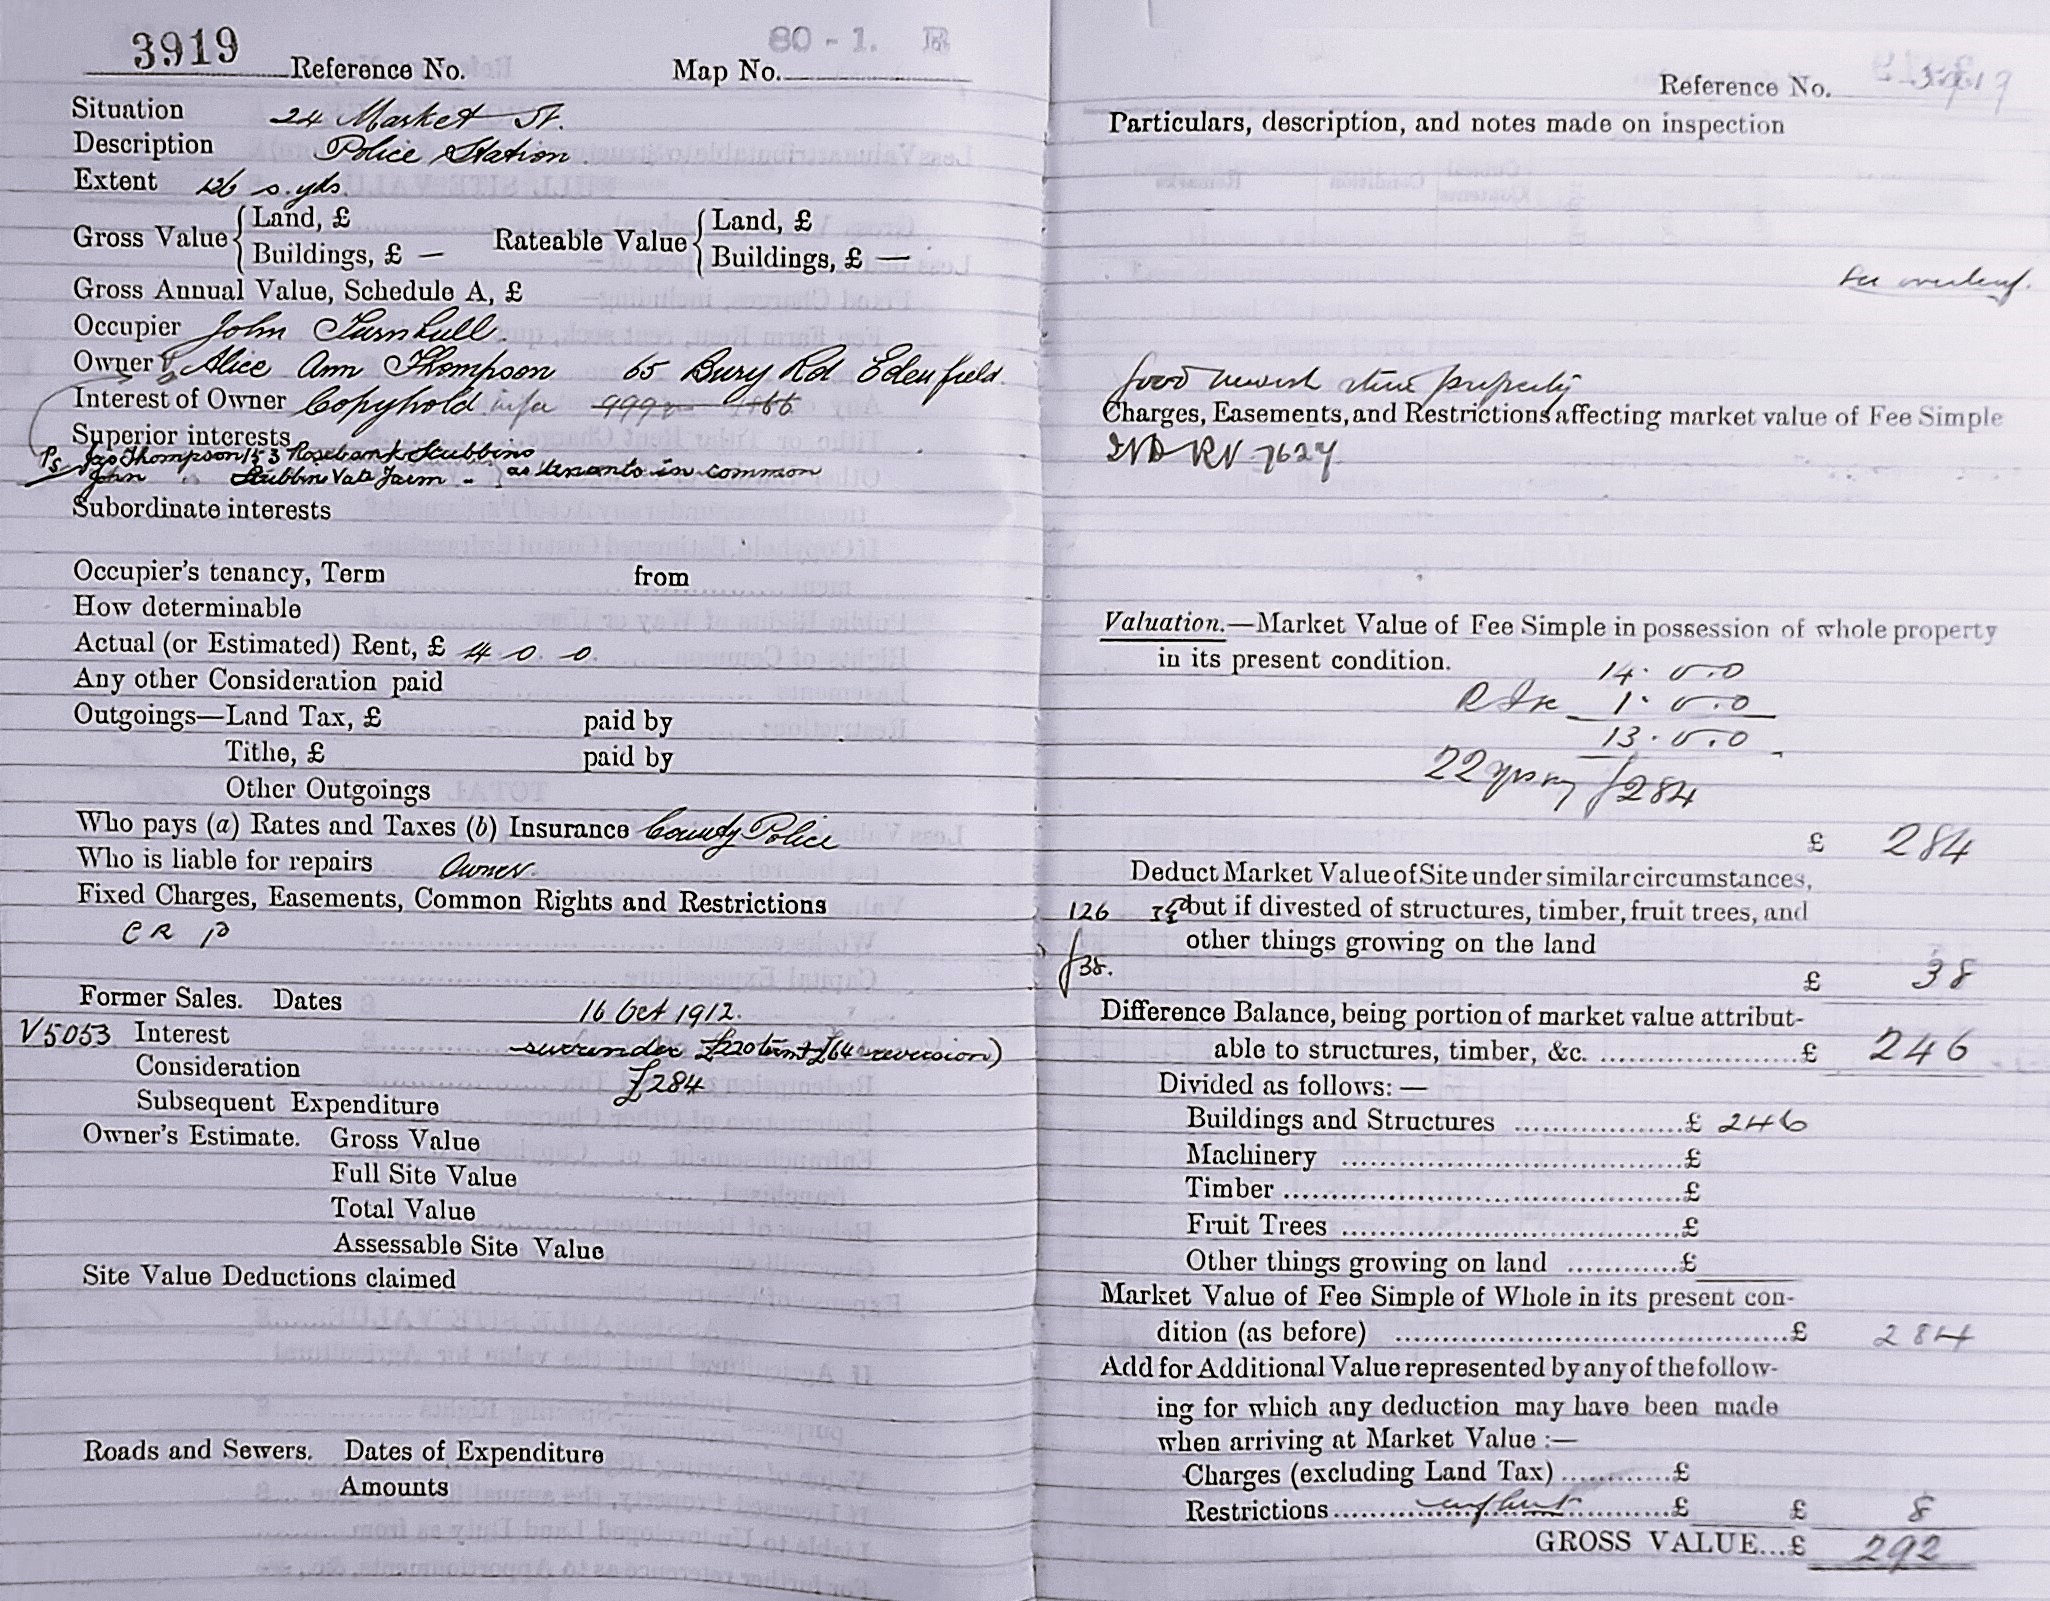 3919 Reference No. Map No. 80 - 1. B
Situation 24 Market St.
Description Police Station
Extent 126 s. yds.
Gross Value { Land, £ Rateable Value { Land, £
Buildings, £ — Buildings, £ —
Gross Annual Value, Schedule A, £
Occupier John Turnbull.
Owner Alice Ann Thompson 65 Bury Rd Edenfield.
Interest of Owner Copyhold 999 1866
Superior interests
Jas Thompson 153 Rosebank Stubbins
John " Stubbins Vale Farm - } as tenants in common
Subordinate interests
Occupier's tenancy, Term from
How determinable
Actual (or Estimated) Rent, £ 14 0. 0.
Any other Consideration paid
Outgoings—Land Tax, £ paid by
Tithe, £ paid by
Other Outgoings
Who pays (a) Rates and Taxes (b) Insurance County Police
Who is liable for repairs Owner.
Fixed Charges, Easements, Common Rights and Restrictions
C R P
Former Sales. Dates 16 Oct 1912.
V5053 Interest surrender £220 term + £64 reversion)
Consideration £284
Subsequent Expenditure
Owner's Estimate. Gross Value
Full Site Value
Total Value
Assessable Site Value
Site Value Deductions claimed
Roads and Sewers. Dates of Expenditure
Amounts
Reference No. 3919
Particulars, description, and notes made on inspection
See overleaf.
Good newish stone property
Charges, Easements, and Restrictions affecting market value of Fee Simple
IVD RN 7624
Valuation.—Market Value of Fee Simple in possession of whole property
in its present condition.
14. 0. 0
1. 0. 0
13. 0. 0
22 yrs £284
£ 284
Deduct Market Value of Site under similar circumstances,
126 but if divested of structures, timber, fruit trees, and
other things growing on the land
£38.
£ 38
Difference Balance, being portion of market value attribut-
able to structures, timber, &c. £ 246
Divided as follows:—
Buildings and Structures £ 246
Machinery £
Timber £
Fruit Trees £
Other things growing on land £
Market Value of Fee Simple of Whole in its present con-
dition (as before) £ 284
Add for Additional Value represented by any of the follow-
ing for which any deduction may have been made
when arriving at Market Value :—
Charges (excluding Land Tax) £
Restrictions £ £ 8
GROSS VALUE...£ 292